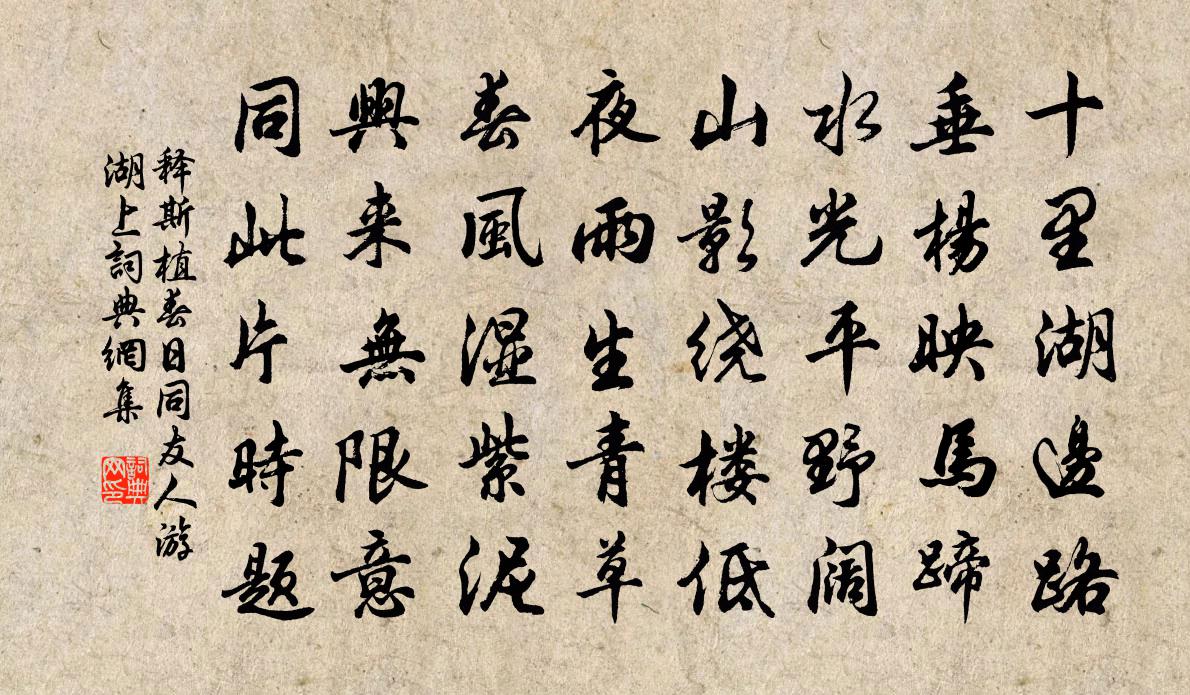 十里湖邊路
垂楊映馬蹄
水光平野阔
山影绕楼低
夜雨生青草
春風湿紫泥
興来無限意
同此片時题
释斯植春日同友人游
湖上詞典網集
詞典
网印